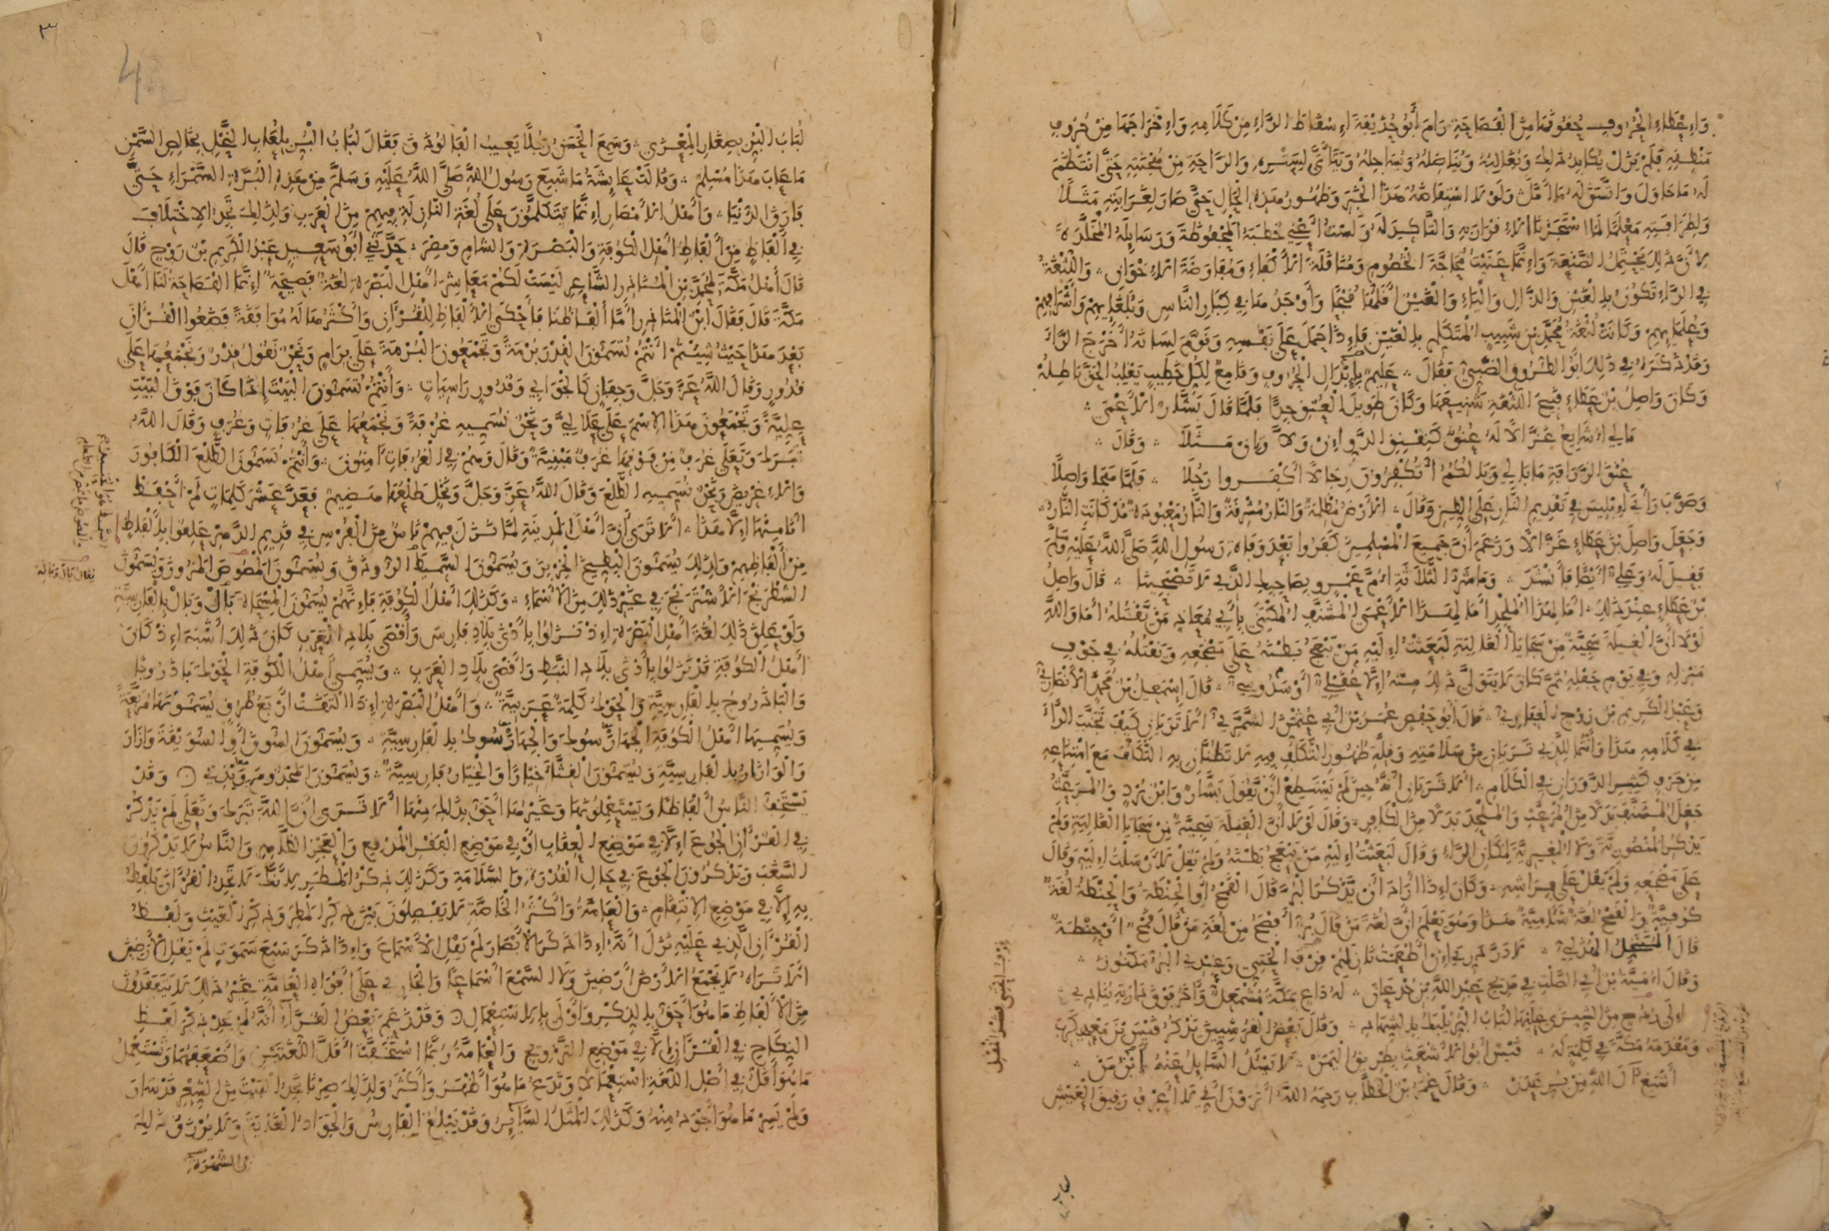 وإعطاء الحروف حقوقها من الفصاحة رام أبو حذيفة إسقاط الراء من كلامه وإخراجها من حروف
منطقه فلم يزل يكابد ذلك ويغالبه ويناضله ويساجله ويتأتى لستره والراحة من هجنته حتى انتظم
له ما حاول واتسق له ما أمل ولولا استفاضة هذا الخبر وظهور هذه الحال حتى صار لغرابته مثلا
ولطرافته معلما لما استجزنا الإقرار به والتأكيد له ولست أعني خطبه المحفوظة ورسايله المخلدة
لأن ذلك يحتمل الصنعة وإنما عنيت محاجة الخصوم ومناقلة الأكفاء ومفاوضة الإخوان واللثغة
في الراء تكون بالغين والذال والياء والغين أقلها قبحا وأوجدها في كبار الناس وبلغايهم وأشرافهم
وعلمايهم وكانت لثغة محمد بن شبيب المتكلم بالغين فإذا حمل على نفسه وقوم لسانه أخرج الراء
وقد ذكره في ذلك أبو الطروق الضبي فقال عليم بإبدال الحروف وقامع لكل خطيب يغلب الحق باطله
وكان واصل بن عطاء قبيح اللثغة شنيعها وكان طويل العنق جدا فلما قال بشار الأعمى
مالي أشايع غزالا له عنق كنقنق الدو إن ولى وإن مثلا وقال
عنق الزرافة ما بالي وبالكم أتكفرون رجالا أكفروا رجلا فلما هجا واصلا
وصوب رأي إبليس في تقديم النار على الطين وقال الأرض مظلمة والنار مشرقة والنار معبودة مذ كانت النار
وجعل واصل بن عطاء غزالا وزعم أن جميع المسلمين كفروا بعد وفاة رسول الله صلى الله عليه وسلم
فقيل له وعلي أيضا فأنشد وما شر الثلاثة أم عمرو بصاحبك الذي لا تصبحينا قال واصل
بن عطاء عند ذلك أما لهذا الملحد أما لهذا الأعمى المشنف المكتني بأبي معاذ من يقتله أما والله
لولا أن الغيلة سجية من سجايا الغالية لبعثت إليه من يبعج بطنه على مضجعه ويقتله في جوف
منزله وفي يوم حفله ثم كان لا يتولى ذلك منه إلا عقيلي أو سدوسي قال إسمعيل بن محمد الأنصاري
وعبد الكريم بن روح الغفاري قال أبو حفص عمر بن أبي عثمن الشمري ألا تريان كيف تجنب الراء
في كلامه هذا وأنتما للذي تريان من سلامته وقلة ظهور التكلف فيه لا تظنان به التكلف مع امتناعه
من حرف كثير الدوران في الكلام ألا تريان أنه حين لم يستطع أن يقول بشار وابن برد والمرعث
جعل المشنف بدلا من المرعث والملحد بدلا من الكافر وقال لولا أن الغيلة سجية من سجايا الغالية ولم
يذكر المنصورية ولا المغيرية لمكان الراء وقال لبعثت إليه من يبعج بطنه ولم يقل لأرسلت إليه وقال
على مضجعه ولم يقل على فراشه وكان إذا أراد أن يذكر البر قال القمح أو الحنطة والحنطة لغة
كوفية والقمح لغة شامية هذا وهو يعلم أن لغة من قال بر أفصح من لغة من قال قمح أو حنطة
قال المتنخل الهذلي لا در دري إن أطعمت نازلهم قرف الحتي وعندي البر مكنوز
وقال أمية بن أبي الصلت في مديح عبد الله بن جدعان له داع بمكة مشمعل وآخر فوق دارته ينادي
إلى ردح من الشيزى عليها لباب البر يلبك بالشهاد وقال بعض القرشيين يذكر قيس بن معدي كرب
ومقدمه مكة في كلمة له قيس أبو الأشعث بطريق اليمن لا يسأل السايل عنه ابن من
أشبع آل الله من بر عدن وقال عمر بن الخطاب رحمه الله أترون أني لا أعرف رقيق العيش
لباب البر بصغار المعزى وسمع الحسن رجلا يعيب الفالوذق فقال لباب البر بلعاب النحل بخالص السمن
ما عاب هذا مسلم وقالت عايشة ما شبع رسول الله صلى الله عليه وسلم من هذه البرة السمراء حتى
فارق الدنيا وأهل الأمصار إنما يتكلمون على لغة النازلة فيهم من العرب ولذلك تجد الاختلاف
في ألفاظ من ألفاظ أهل الكوفة والبصرة والشام ومصر حدثني أبو سعيد عبد الكريم بن روح قال
قال أهل مكة لمحمد بن المناذر الشاعر ليست لكم معاشر أهل البصرة لغة فصيحة إنما الفصاحة لنا أهل
مكة قال فقال ابن المناذر أما ألفاظنا فأحكى الألفاظ للقرآن وأكثرها له موافقة فضعوا القرآن
بعد هذا حيث شئتم أنتم تسمون القدر برمة وتجمعون البرمة على برام ونحن نقول قدر ونجمعها على
قدور وقال الله عز وجل وجفان كالجوابي وقدور راسيات وأنتم تسمون البيت إذا كان فوق البيت
علية وتجمعون هذا الاسم على علالي ونحن نسميه غرفة ونجمعها على غرفات وغرف وقال الله
تبرك وتعلى غرف من فوقها غرف مبنية وقال وهم في الغرفات آمنون وأنتم تسمون الطلع الكافور
والإغريض ونحن نسميه الطلع وقال الله عز وجل ونخل طلعها هضيم فعد عشر كلمات لم أحفظ
أنا منها إلا هذا ألا ترى أن أهل المدينة لما نزل فيهم ناس من الفرس في قديم الدهر علقوا بألفاظ
من ألفاظهم ولذلك يسمون البطيخ الخربز ويسمون السميط الروذق ويسمون المصوص المزور ويسمون
الشطرنج الأشترنج في غير ذلك من الأسماء وكذلك أهل الكوفة فإنهم يسمون المسحاة بال وبال بالفارسية
ولو علق ذلك لغة أهل البصرة إذ نزلوا بأدنى بلاد فارس وأقصى بلاد العرب كان ذلك أشبه إذ كان
أهل الكوفة قد نزلوا بأدنى بلاد النبط وأقصى بلاد العرب ويسمي أهل الكوفة الحوك باذروج
والباذروج بالفارسية والحوك كلمة عربية وأهل البصرة إذا التقت أربع طرق يسمونها مربعة
ويسميها أهل الكوفة الجهارسوك والجهارسوك بالفارسية ويسمون السوق أو السويقة وازار
والوازار بالفارسية ويسمون القثاء خيارا والخيار فارسية ويسمون المجذوم ويذي وقد
يستخف الناس ألفاظا ويستعملونها وغيرها أحق بذلك منها ألا ترى أن الله تبرك وتعلى لم يذكر
في القرآن الجوع إلا في موضع العقاب أو في موضع الفقر المدقع والعجز الظاهر والناس لا يذكرون
السغب ويذكرون الجوع في حال القدرة والسلامة وكذلك ذكر المطر لأنك لا تجد القرآن يلفظ
به إلا في موضع الانتقام والعامة وأكثر الخاصة لا يفصلون بين ذكر المطر وذكر الغيث ولفظ
القرآن الذي عليه نزل أنه إذا ذكر الأبصار لم يقل الأسماع وإذا ذكر سبع سموت لم يقل الأرضين
ألا تراه لا يجمع الأرض أرضين ولا السمع أسماعا والجاري على أفواه العامة غير ذلك لا يتفقدون
من الألفاظ ما هو أحق بالذكر وأولى بالاستعمال وقد زعم بعض القراء أنه لم يجد ذكر لفظ
النكاح في القرآن إلا في موضع التزويج والعامة ربما استخفت أقل اللغتين وأضعفهما وتستعمل
ما هو أقل في أصل اللغة استعمالا وتدع ما هو أظهر وأكثر ولذلك صرنا نجد البيت من الشعر قد سار
ولم يسر ما هو أجود منه وكذلك المثل الساير وقد يبلغ الفارس والجواد الغاية ولا يرزق ذلك
من الشهرة